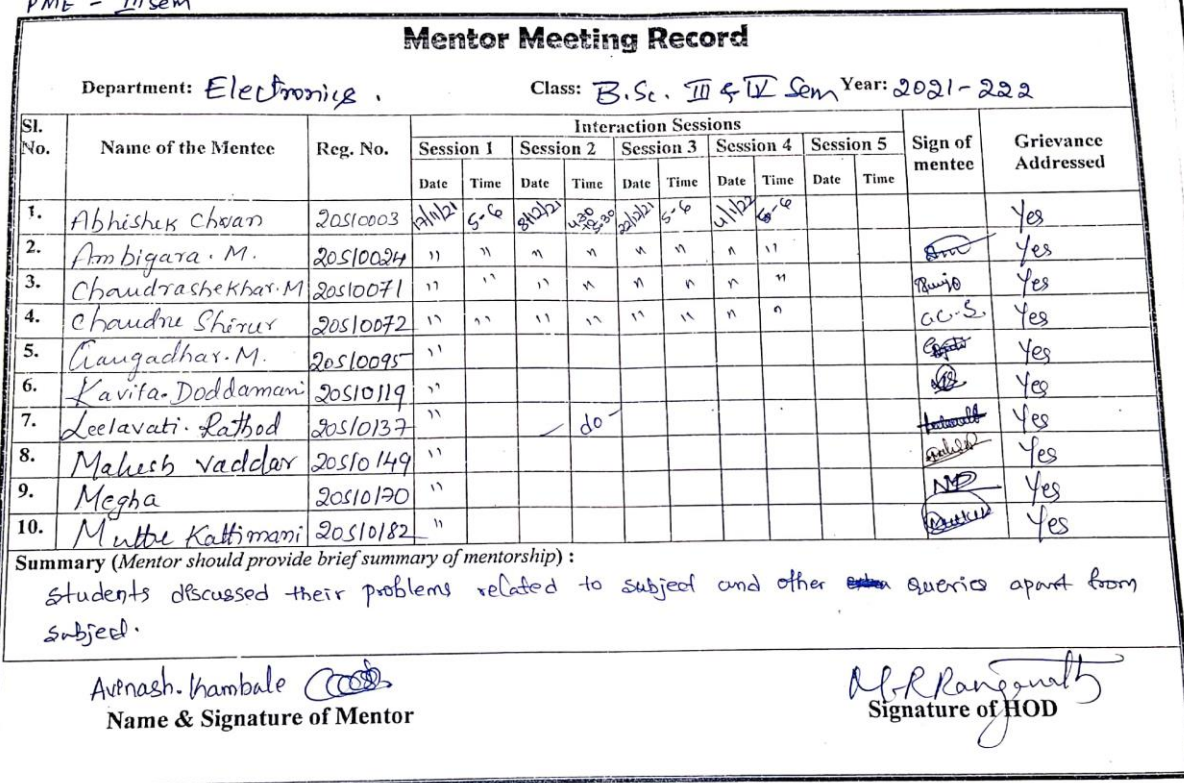 PME - III Sem
Mentor Meeting Record
Department: Electronics . Class: B.Sc. III & IV Sem Year: 2021-222
Sl. No. Name of the Mentee Reg. No. Interaction Sessions Sign of mentee Grievance Addressed
Session 1 Session 2 Session 3 Session 4 Session 5
Date Time Date Time Date Time Date Time Date Time
1. Abhishek Chvan 20S10003 12/11/21 5-6 8/12/21 4.30 to 5.30 22/12/21 5-6 4/1/22 5-6 Yes
2. Ambigara. M. 20S10024 " " " " " " " " Yes
3. Chaudrashekhar.M 20S10071 " " " " " " " " Yes
4. Chaudru Shirur 20S10072 " " " " " " " " C.C.S. Yes
5. Gaugadhar.M. 20S10095 " Yes
6. Kavita.Doddamani 20S10119 " Yes
7. Leelavati. Rathod 20S10137 " - do - Yes
8. Mahesh Vaddar 20S10149 " Yes
9. Megha 20S10170 " Yes
10. Muttu Kattimani 20S10182 " Yes
Summary (Mentor should provide brief summary of mentorship) :
Students discussed their problems related to subject and other queries apart from
subject.
Avinash. Kambale
Name & Signature of Mentor
M.R Ranganath
Signature of HOD